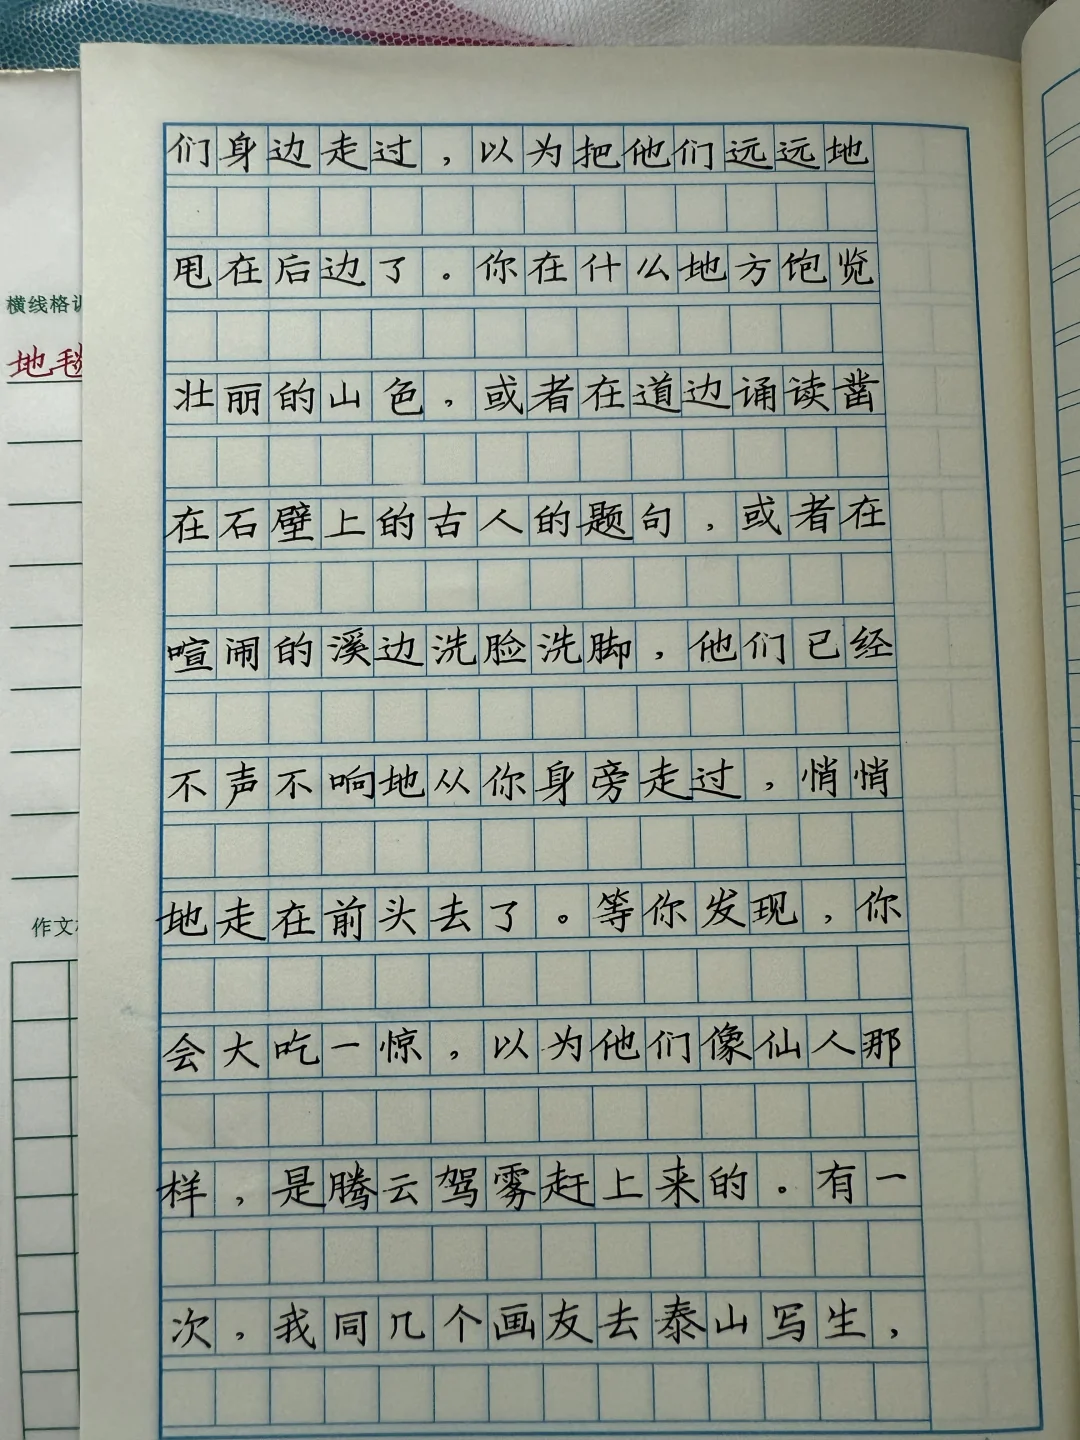 们身边走过，以为把他们远远地
甩在后边了。你在什么地方饱览
壮丽的山色，或者在道边诵读凿
在石壁上的古人的题句，或者在
喧闹的溪边洗脸洗脚，他们已经
不声不响地从你身旁走过，悄悄
地走在前头去了。等你发现，你
会大吃一惊，以为他们像仙人那
样，是腾云驾雾赶上来的。有一
次，我同几个画友去泰山写生，
横线格训
地毯
作文